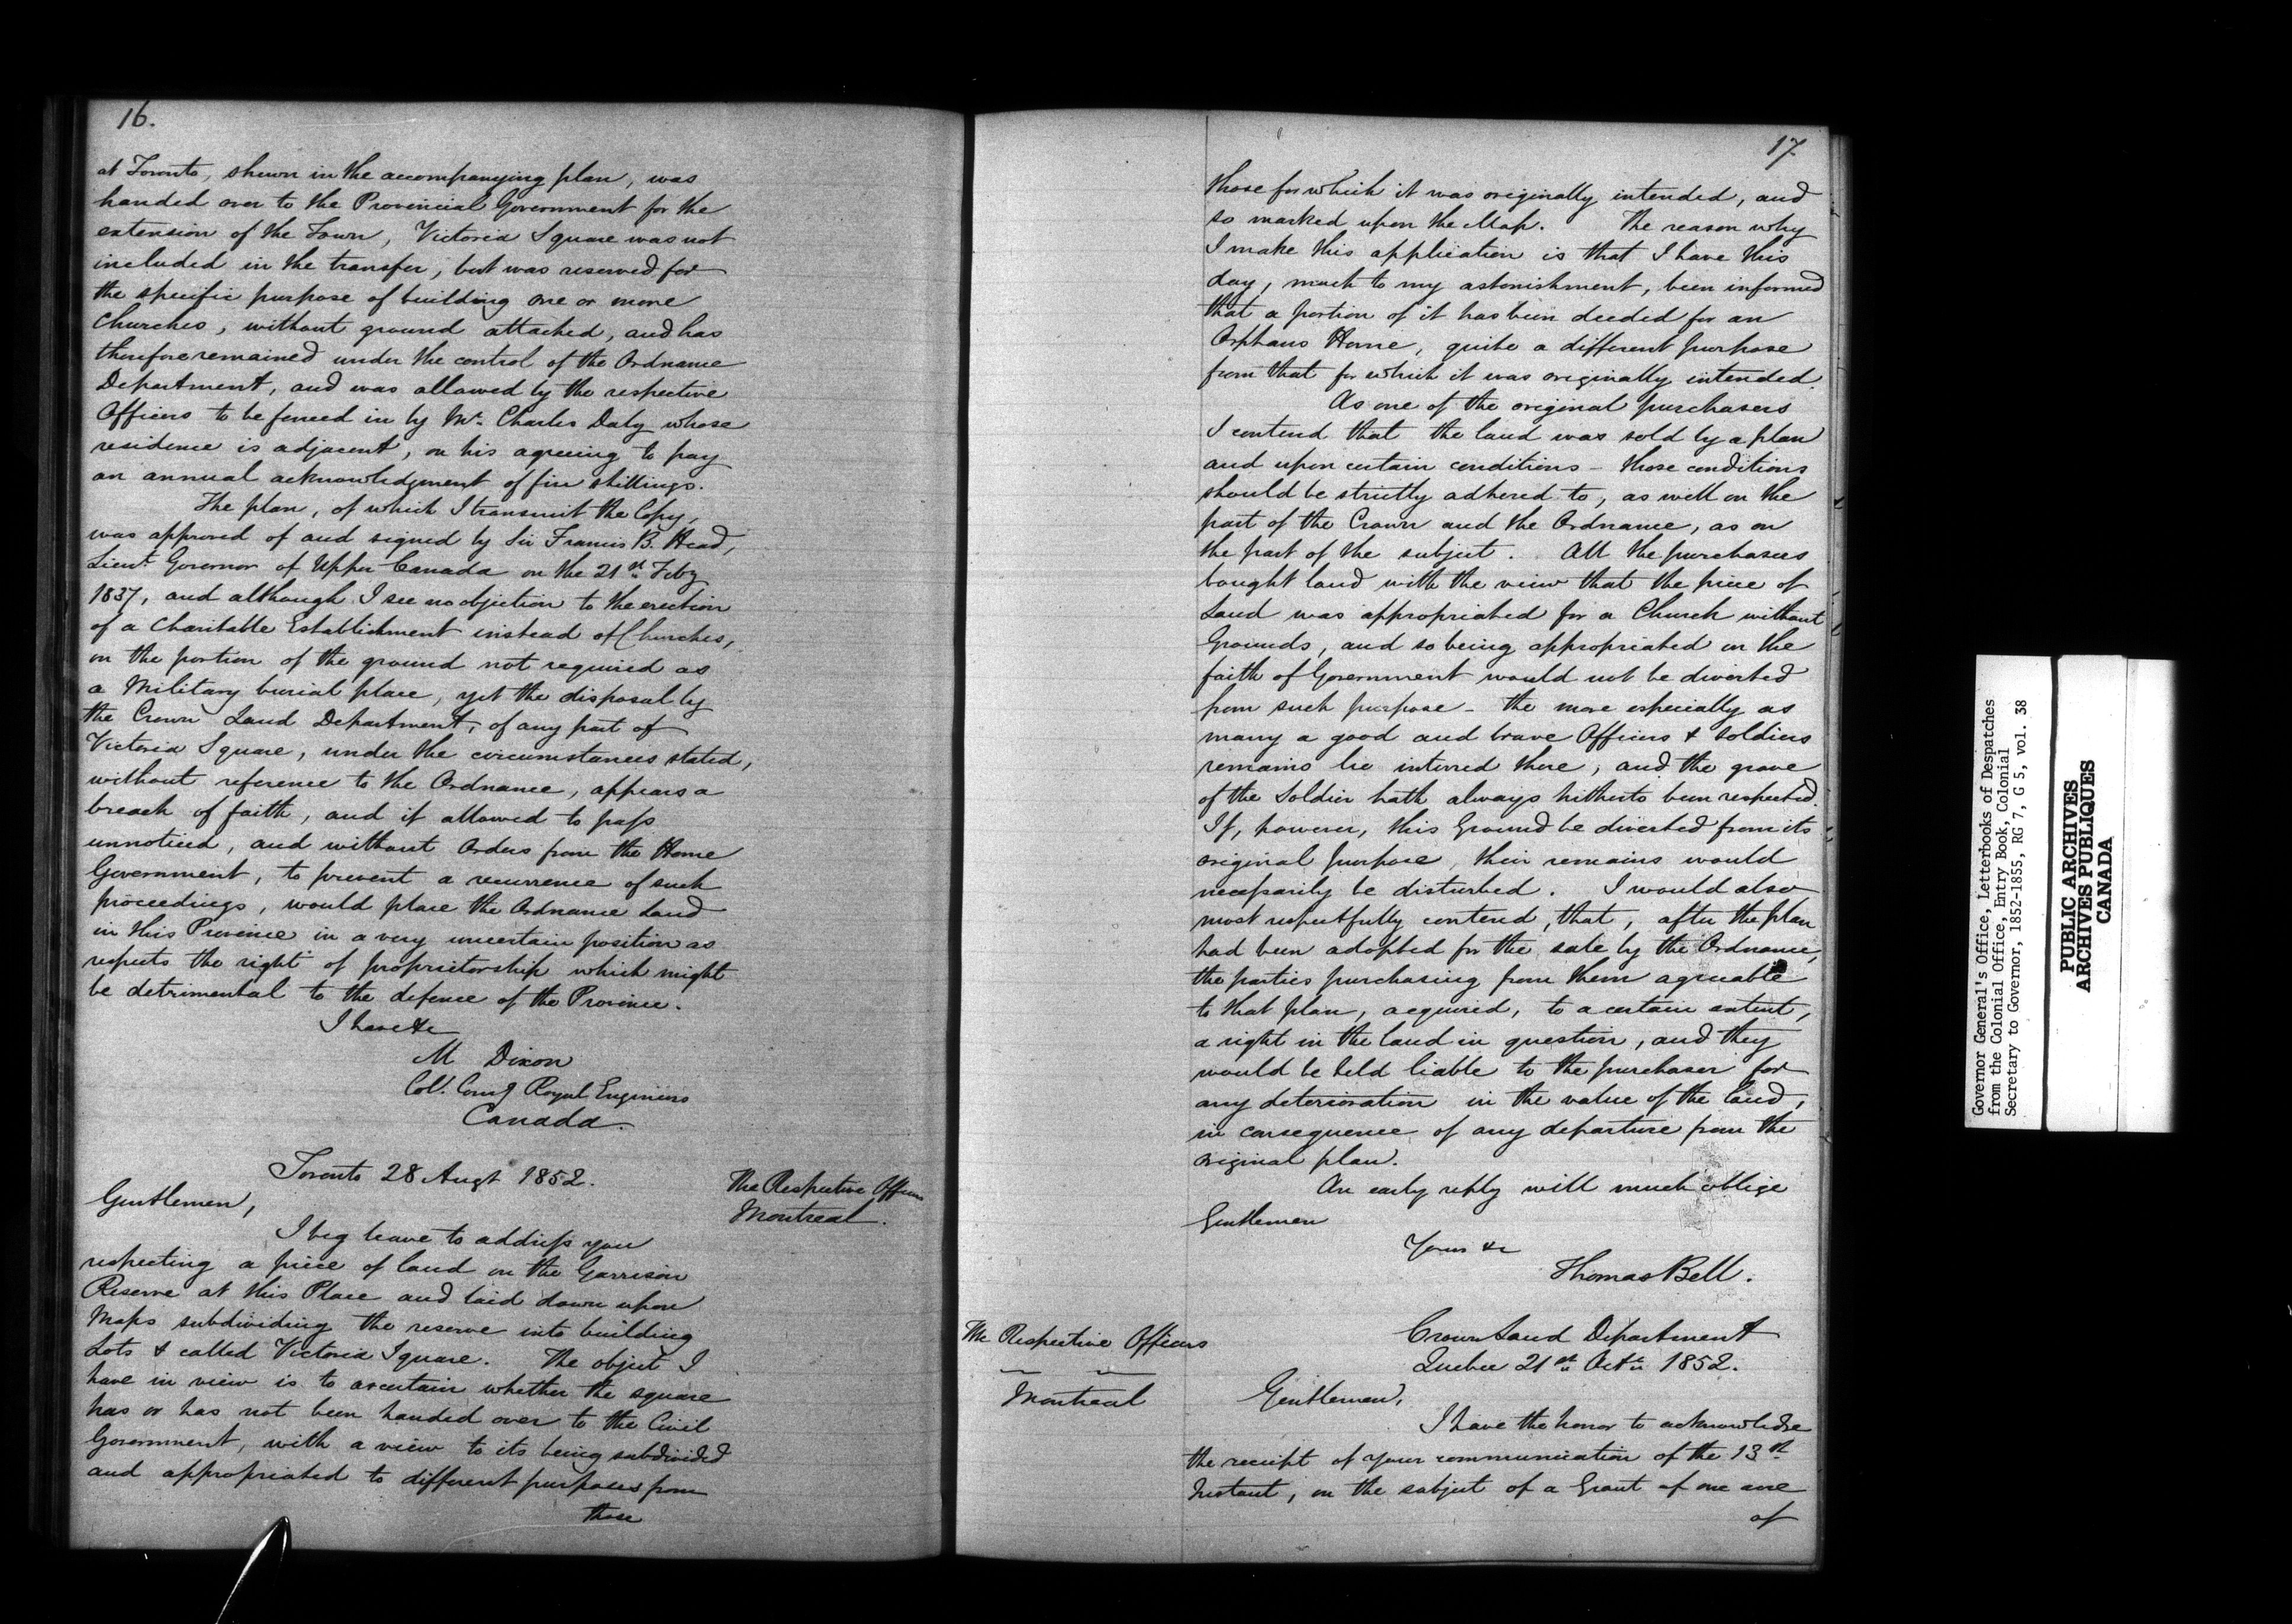 16.
at Toronto, shewn in the accompanying plan, was
handed over to the Provincial Government for the
extension of the Town, Victoria Square was not
included in the transfer, but was reserved for
the specific purpose of building one or more
Churches, without ground attached, and has
therefore remained under the control of the Ordnance
Department, and was allowed by the respective
Officers to be fenced in by Mr. Charles Daly whose
residence is adjacent, on his agreeing to pay
an annual acknowledgement of five shillings.
The plan, of which I transmit the Copy,
was approved of and signed by Sir Francis B. Head,
Lieut Governor of Upper Canada on the 21st Feby
1837, and although I see no objection to the erection
of a Charitable Establishment instead of Churches,
on the portion of the ground not required as
a Military burial place, yet the disposal by
the Crown Land Department, of any part of
Victoria Square, under the circumstances stated,
without reference to the Ordnance, appears a
breach of faith, and if allowed to pass
unnoticed, and without Orders from the Home
Government, to prevent a recurrence of such
proceedings, would place the Ordnance Land
in this Province in a very uncertain position as
respects the right of proprietorship which might
be detrimental to the defence of the Province.
I have &c
M Dixon
Col. Comg Royal Engineers
Canada.
Toronto 28 Augt 1852.
The Respective Officers
Montreal.
Gentlemen,
I beg leave to address you
respecting a piece of land on the Garrison
Reserve at this Place and laid down upon
Maps subdividing the reserve into building
Lots & called Victoria Square. The object I
have in view is to ascertain whether the square
has or has not been handed over to the Civil
Government, with a view to its being subdivided
and appropriated to different purposes from
those
17
those for which it was originally intended, and
so marked upon the Map. The reason why
I make this application is that I have this
day, much to my astonishment, been informed
that a portion of it has been deeded for an
Orphans Home, quite a different purpose
from that for which it was originally intended.
As one of the original purchasers
I contend that the land was sold by a plan
and upon certain conditions - those conditions
should be strictly adhered to, as well on the
part of the Crown and the Ordnance, as on
the part of the subject. All the purchasers
bought land with the view that the piece of
Land was appropriated for a Church without
Grounds, and so being appropriated on the
faith of Government would not be diverted
from such purpose - the more especially as
many a good and brave Officers & Soldiers
remains lie interred there, and the grave
of the Soldier hath always hitherto been respected.
If, however, this Ground be diverted from its
original purpose, their remains would
necessarily be disturbed. I would also
most respectfully contend, that, after the plan
had been adopted for the sale by the Ordnance,
the parties purchasing from them agreeable
to that plan, acquired, to a certain extent,
a right in the land in question, and they
would be held liable to the purchaser for
any deterioration in the value of the land,
in consequence of any departure from the
original plan.
An early reply will much oblige
Gentlemen
Yours &c
Thomas Bell.
Crown Land Department
Quebec 21st Octr 1852.
The Respective Officers
Montreal
Gentlemen,
I have the honor to acknowledge
the receipt of your communication of the 13th
Instant, on the subject of a Grant of one acre
of
Governor General's Office, Letterbooks of Despatches
from the Colonial Office, Entry Book, Colonial
Secretary to Governor, 1852-1855, RG 7, G 5, vol. 38
PUBLIC ARCHIVES
ARCHIVES PUBLIQUES
CANADA